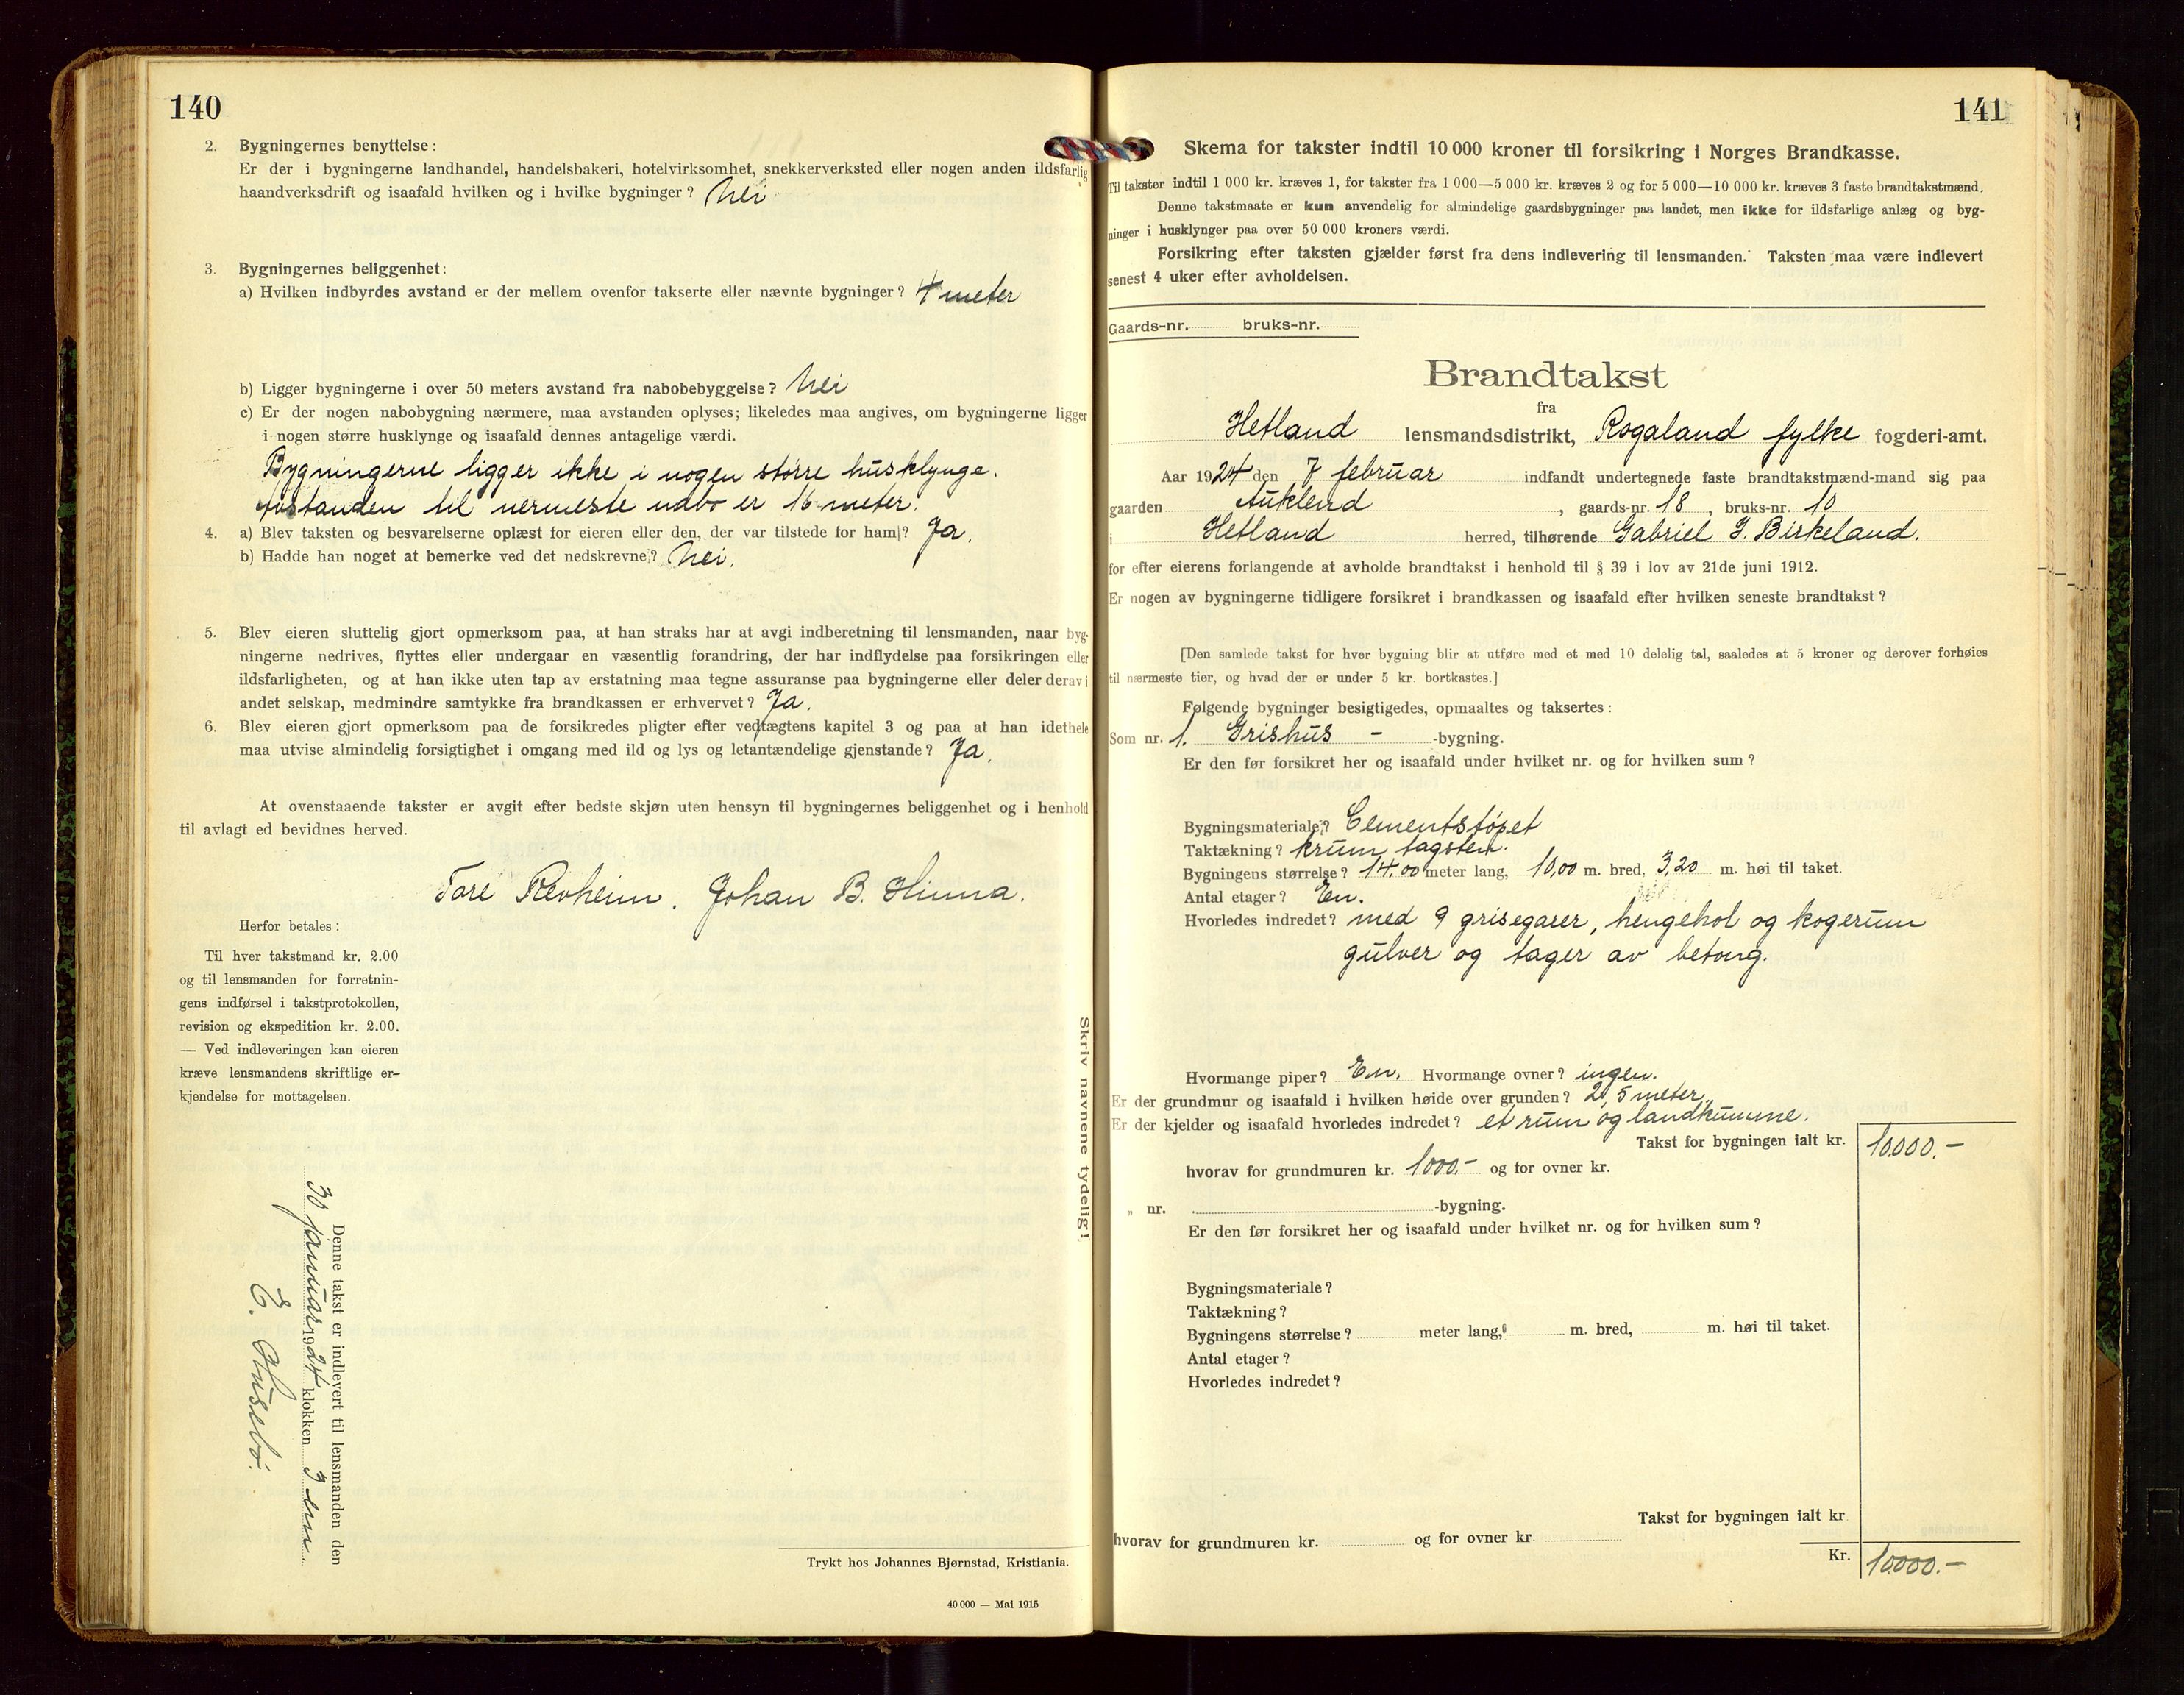 140
2. Bygningernes benyttelse:
Er der i bygningerne landhandel, handelsbakeri, hotelvirksomhet, snekkerverksted eller nogen anden ildsfarlig
haandverksdrift og isaafald hvilken og i hvilke bygninger? Nei
3. Bygningernes beliggenhet:
a) Hvilken indbyrdes avstand er der mellem ovenfor takserte eller nævnte bygninger? 4 meter
b) Ligger bygningerne i over 50 meters avstand fra nabobebyggelse? Nei
c) Er der nogen nabobygning nærmere, maa avstanden oplyses; likeledes maa angives, om bygningerne ligger
i nogen større husklynge og isaafald dennes antagelige værdi.
Bygningerne ligger ikke i nogen större husklynge.
Avstanden til nermeste nabo er 16 meter.
4. a) Blev taksten og besvarelserne oplæst for eieren eller den, der var tilstede for ham? Ja.
b) Hadde han noget at bemerke ved det nedskrevne? Nei.
5. Blev eieren sluttelig gjort opmerksom paa, at han straks har at avgi indberetning til lensmanden, naar byg-
ningerne nedrives, flyttes eller undergaar en væsentlig forandring, der har indflydelse paa forsikringen eller
ildsfarligheten, og at han ikke uten tap av erstatning maa tegne assuranse paa bygningerne eller deler derav i
andet selskap, medmindre samtykke fra brandkassen er erhvervet? Ja.
6. Blev eieren gjort opmerksom paa de forsikredes pligter efter vedtægtens kapitel 3 og paa at han idethele
maa utvise almindelig forsigtighet i omgang med ild og lys og letantændelige gjenstande? Ja.
At ovenstaaende takster er avgit efter bedste skjøn uten hensyn til bygningernes beliggenhet og i henhold
til avlagt ed bevidnes herved.
Tore Revheim. Johan B. Hinna.
Herfor betales:
Til hver takstmand kr. 2.00
og til lensmanden for forretnin-
gens indførsel i takstprotokollen,
revision og ekspedition kr. 2.00.
— Ved indleveringen kan eieren
kræve lensmandens skriftlige er-
kjendelse for mottagelsen.
Skriv navnene tydelig!
Denne takst er indlevert til lensmanden den
30 januar 1924 klokken 3 em.
E. Husebö.
Trykt hos Johannes Bjørnstad, Kristiania.
40 000 — Mai 1915
141
Skema for takster indtil 10 000 kroner til forsikring i Norges Brandkasse.
Til takster indtil 1 000 kr. kræves 1, for takster fra 1 000—5 000 kr. kræves 2 og for 5 000—10 000 kr. kræves 3 faste brandtakstmænd.
Denne takstmaate er kun anvendelig for almindelige gaardsbygninger paa landet, men ikke for ildsfarlige anlæg og byg-
ninger i husklynger paa over 50 000 kroners værdi.
Forsikring efter taksten gjælder først fra dens indlevering til lensmanden. Taksten maa være indlevert
senest 4 uker efter avholdelsen.
Gaards-nr. bruks-nr.
Brandtakst
fra
Hetland lensmandsdistrikt, Rogaland fylke fogderi-amt.
Aar 1924 den 7 februar indfandt undertegnede faste brandtakstmænd-mand sig paa
gaarden Auklend, gaards-nr. 18, bruks-nr. 10
i Hetland herred, tilhørende Gabriel J. Birkeland.
for efter eierens forlangende at avholde brandtakst i henhold til § 39 i lov av 21de juni 1912.
Er nogen av bygningerne tidligere forsikret i brandkassen og isaafald efter hvilken seneste brandtakst?
[Den samlede takst for hver bygning blir at utføre med et med 10 delelig tal, saaledes at 5 kroner og derover forhøies
til nærmeste tier, og hvad der er under 5 kr. bortkastes.]
Følgende bygninger besigtigedes, opmaaltes og taksertes:
Som nr. 1. Grishus - -bygning.
Er den før forsikret her og isaafald under hvilket nr. og for hvilken sum?
Bygningsmateriale? Cementstöpet
Taktækning? krum tagsten.
Bygningens størrelse? 14.00 meter lang, 10,00 m. bred, 3,20 m. høi til taket.
Antal etager? En.
Hvorledes indredet? med 9 grisegarer, hengehol og kogerum
gulver og tager av betong.
Hvormange piper? En. Hvormange ovner? ingen.
Er der grundmur og isaafald i hvilken høide over grunden? 2,5 meter.
Er der kjelder og isaafald hvorledes indredet? et rum og landkumme.
Takst for bygningen ialt kr. 10.000.-
hvorav for grundmuren kr. 1000.- og for ovner kr.
„ nr. -bygning.
Er den før forsikret her og isaafald under hvilket nr. og for hvilken sum?
Bygningsmateriale?
Taktækning?
Bygningens størrelse? meter lang, m. bred, m. høi til taket.
Antal etager?
Hvorledes indredet?
Takst for bygningen ialt kr
hvorav for grundmuren kr. og for ovner kr.
Kr. 10.000.-